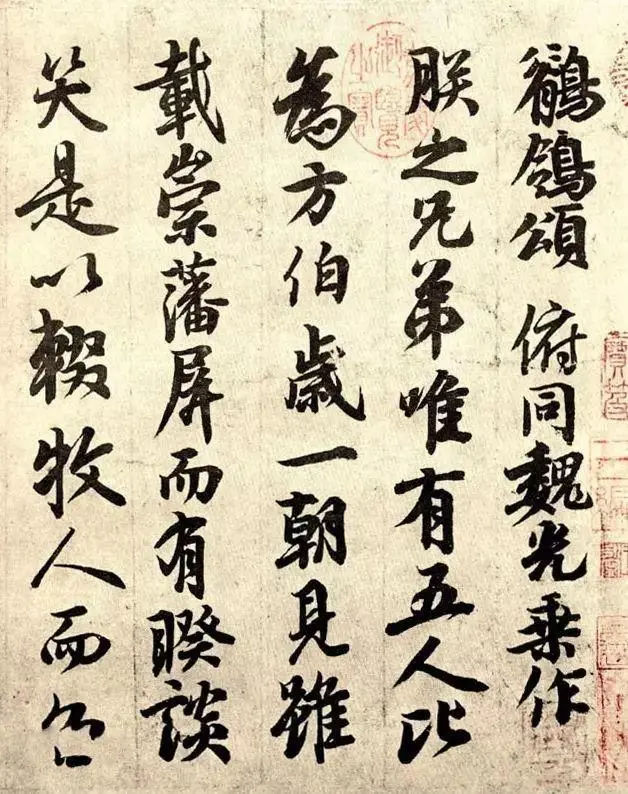 鶺鴒頌 俯同魏光乗作
朕之兄弟唯有五人比
為方伯歳一朝見雖
載崇藩屏而有暌談
笑是以輟牧人而各